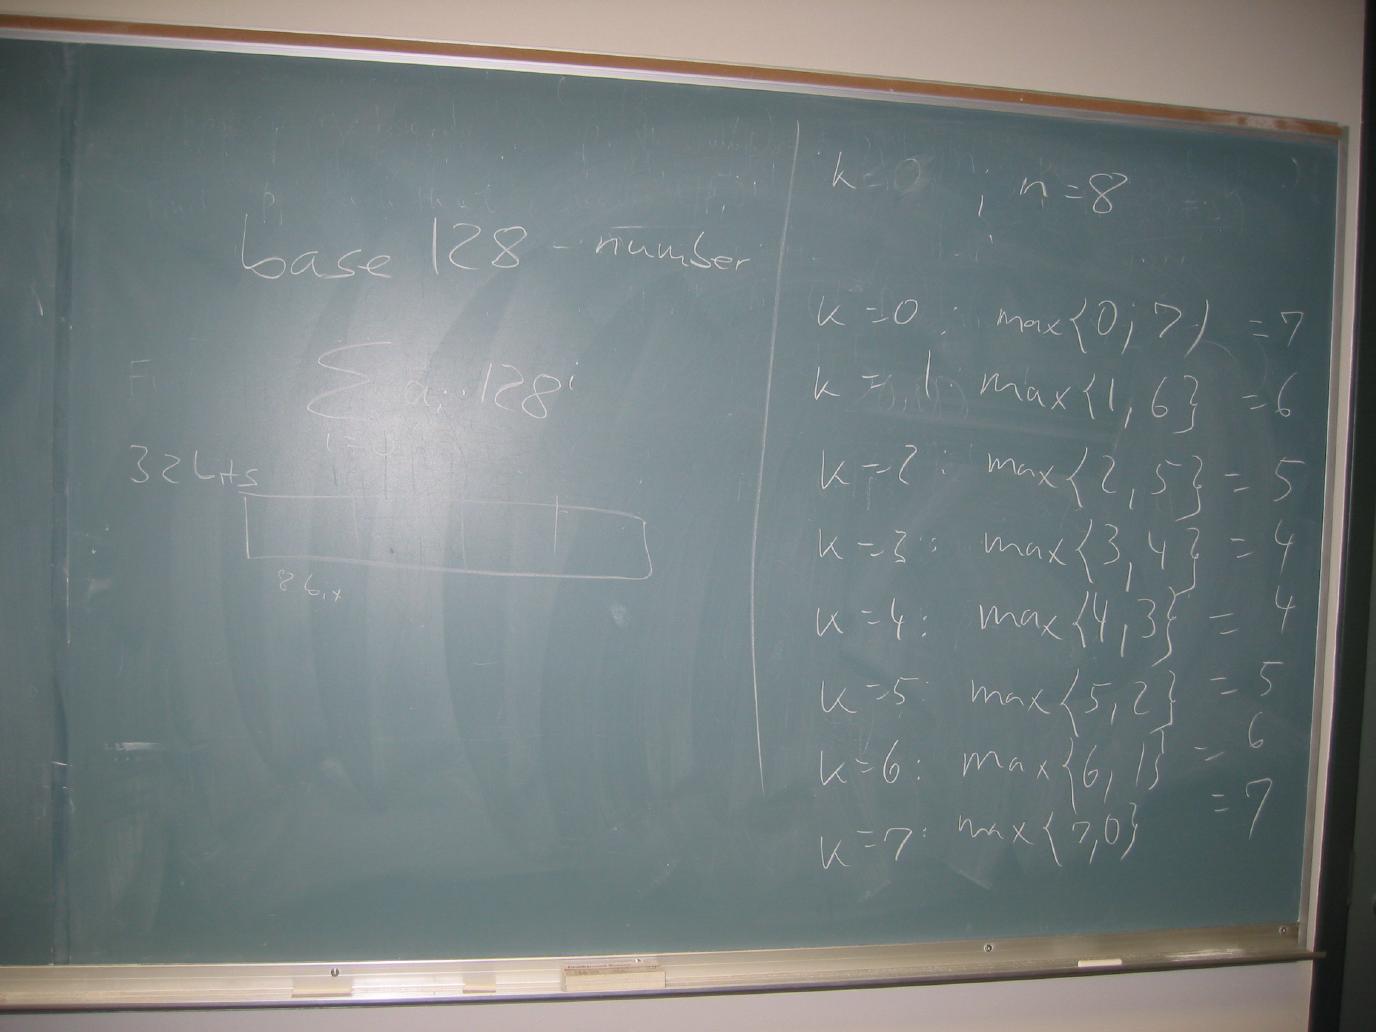 base 128 - number
∑ aᵢ · 128ⁱ
32 bits
8 bit
k=0 ; n=8
k=0: max{0; 7) = 7
k=1: max{1, 6} = 6
k=2: max{2, 5} = 5
k=3: max{3, 4} = 4
k=4: max{4, 3} = 4
k=5: max{5, 2} = 5
k=6: max{6, 1} = 6
k=7: max{7,0} = 7